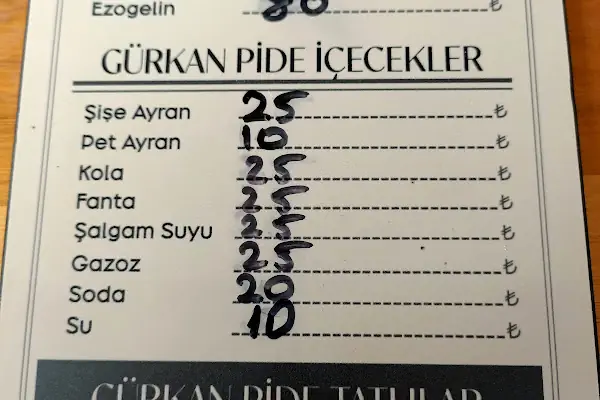 Ezogelin 80 ₺
GÜRKAN PİDE İÇECEKLER
Şişe Ayran 25 ₺
Pet Ayran 10 ₺
Kola 25 ₺
Fanta 25 ₺
Şalgam Suyu 25 ₺
Gazoz 25 ₺
Soda 20 ₺
Su 10 ₺
GÜRKAN PİDE TATLILAR